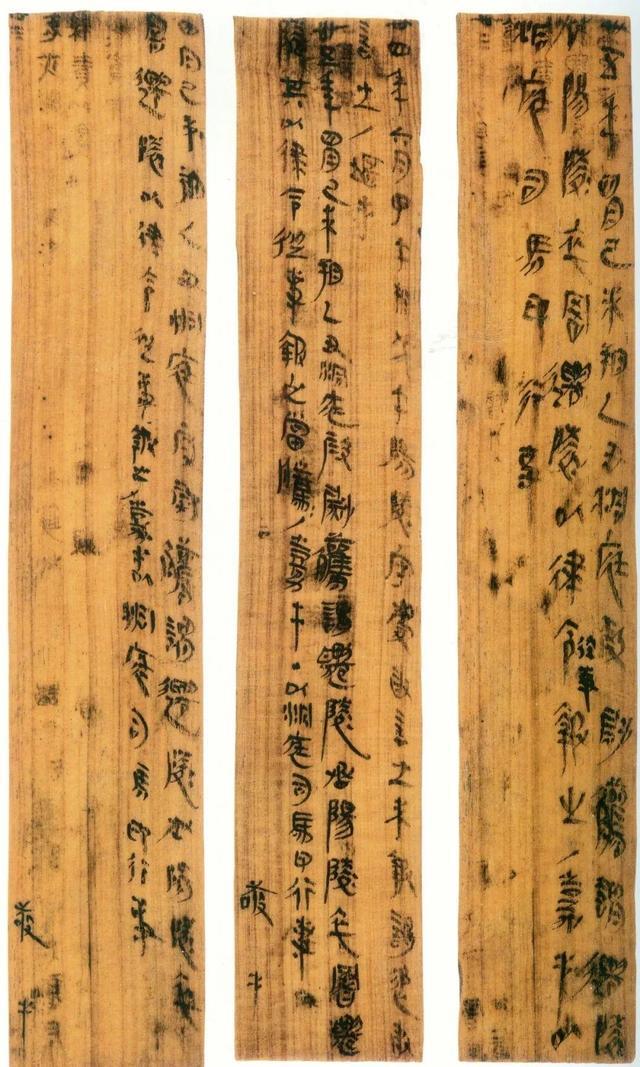 卅五年四月己未朔乙丑洞庭叚尉觿謂遷陵
丞陽陵卒署遷陵以律令從事報之/嘉手以
洞庭司馬印行事
卅四年六月甲午朔戊午陽陵守慶敢言之未報謁追敢
言之/堪手
卅五年四月己未朔乙丑洞庭叚尉觿謂遷陵丞陽陵卒署遷
陵其以律令從事報之當騰/嘉手·以洞庭司馬印行事
敬手
四月己未朔乙丑洞庭叚尉觿謂遷陵丞陽陵卒
署遷陵以律令從事報之/嘉手以洞庭司馬印行事
敬手